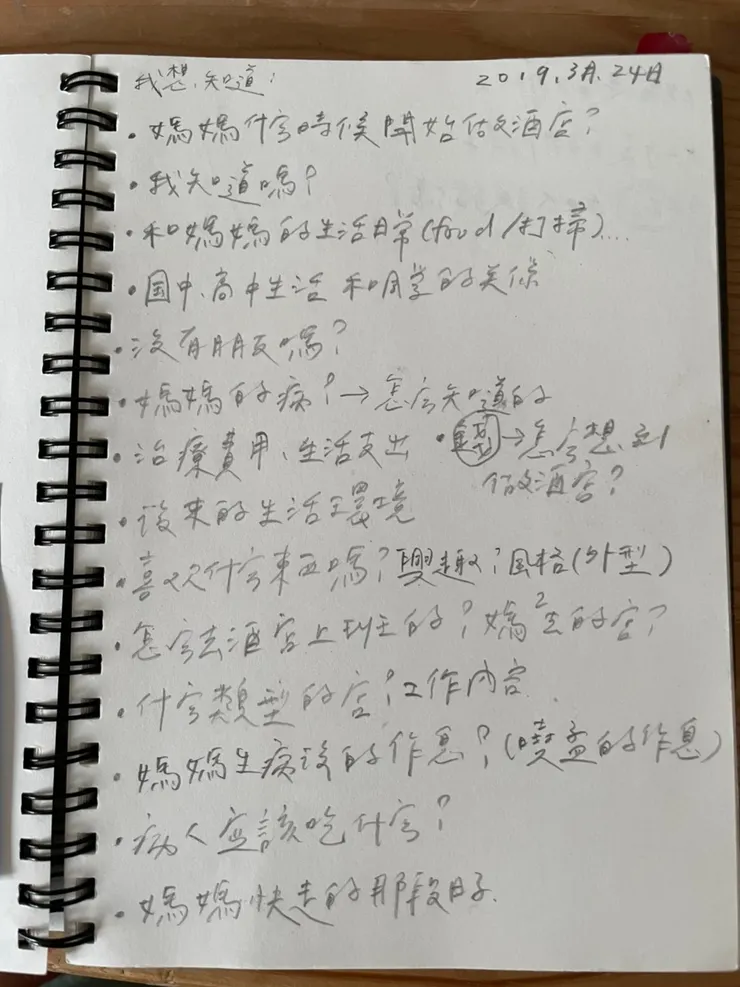 我想知道： 2019.3月.24日
・媽媽什么時候開始做酒店？
・我知道嗎？
・和媽媽的生活日常(food/打掃)...
・国中、高中生活 和同学的关係
・没有朋友嗎？
・媽媽的病？→怎么知道的
・治療費用、生活支出 ・錢→怎么想到
做酒店？
・後來的生活環境
・喜欢什么東西嗎？興趣？風格(外型)
・怎么去酒店上班的？媽²去的店？
・什么類型的店？工作内容.
・媽媽生病後的作息？(曉孟的作息)
・病人应該吃什么？
・媽媽快走的那段日子.